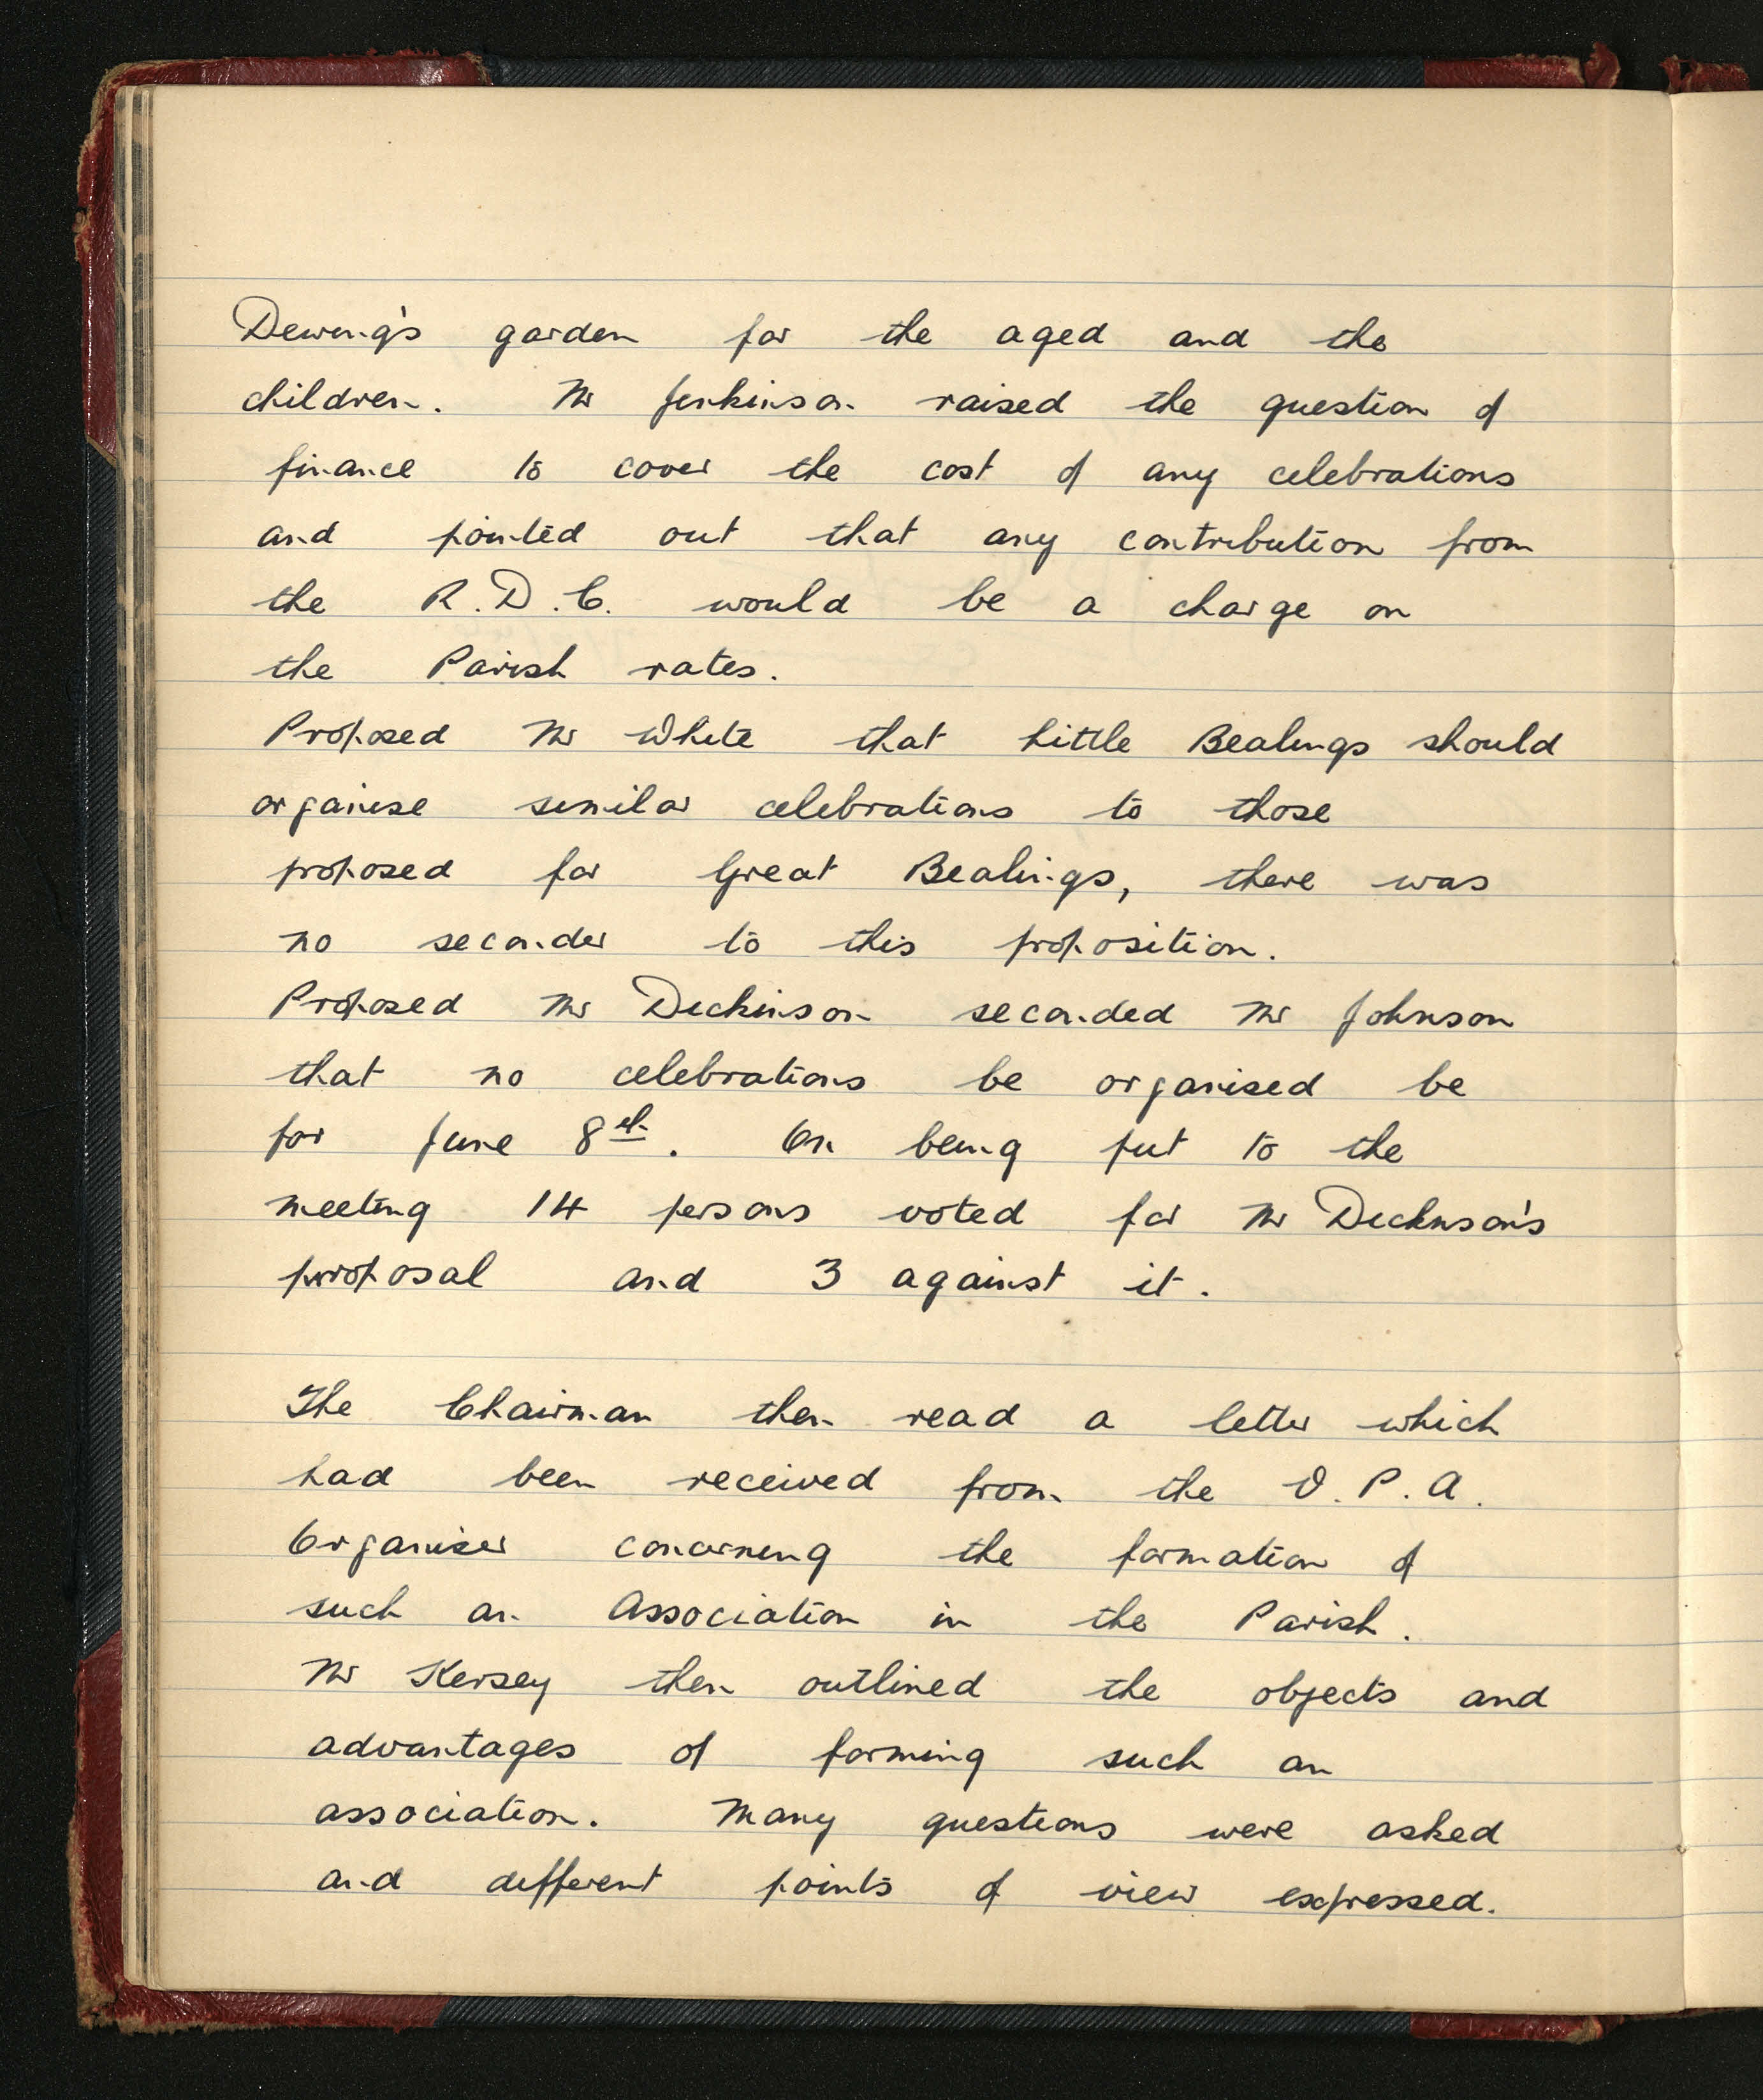 Dewing's garden for the aged and the
children. Mr Jenkinson raised the question of
finance to cover the cost of any celebrations
and pointed out that any contribution from
the R.D.C. would be a charge on
the Parish rates.
Proposed Mr White that Little Bealings should
organise similar celebrations to those
proposed for Great Bealings, there was
no seconder to this proposition.
Proposed Mr Dickinson seconded Mr Johnson
that no celebrations be organised be
for June 8th. On being put to the
meeting 14 persons voted for Mr Dickinson's
proposal and 3 against it.
The Chairman then read a letter which
had been received from the V.P.A.
Organiser concerning the formation of
such an Association in the Parish.
Mr Kersey then outlined the objects and
advantages of forming such an
association. Many questions were asked
and different points of view expressed.